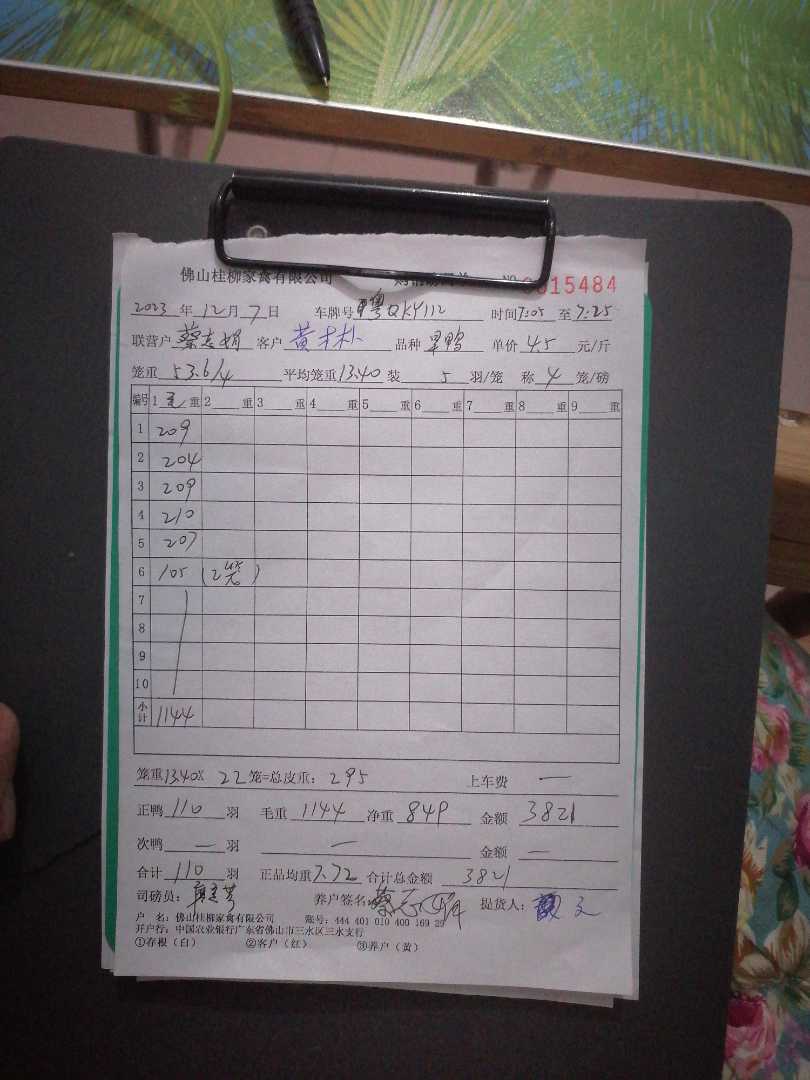 佛山桂柳家禽有限公司 NO 0015484
2023 年 12 月 7 日 车牌号 粤QKY112 时间 7:05 至 7:25
联营户 蔡志娟 客户 黄木朴 品种 旱鸭 单价 4.5 元/斤
笼重 53.6/4 平均笼重 13.40 装 5 羽/笼 称 4 笼/磅
编号 1 毛 重 2 重 3 重 4 重 5 重 6 重 7 重 8 重 9 重
1 209
2 204
3 209
4 210
5 207
6 105 (2笼)
7
8
9
10
小计 1144
笼重 13.40 X 22 笼=总皮重: 295 上车费 —
正鸭 110 羽 毛重 1144 净重 849 金额 3821
次鸭 — 羽 — 金额 —
合计 110 羽 正品均重 7.72 合计总金额 3821
司磅员: 养户签名: 蔡志娟 提货人:
户 名: 佛山桂柳家禽有限公司 账号: 444 401 010 400 169 29
开户行: 中国农业银行广东省佛山市三水区三水支行
①存根(白) ②客户(红) ③养户(黄)